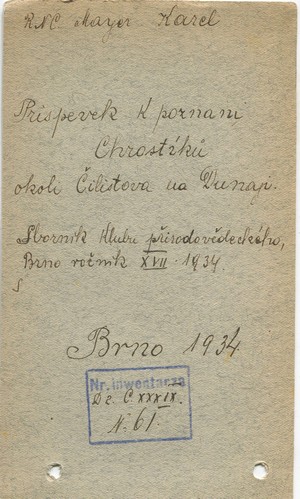 RNC. Mayer Karel
Příspěvek k poznání
Chrostíků
okolí Čilistova na Dunaji.
Sborník Klubu přírodovědeckého,
Brno ročník XVII 1934
Brno 1934
Nr. inwentarza
Dz. C XXXIX.
N. 61.